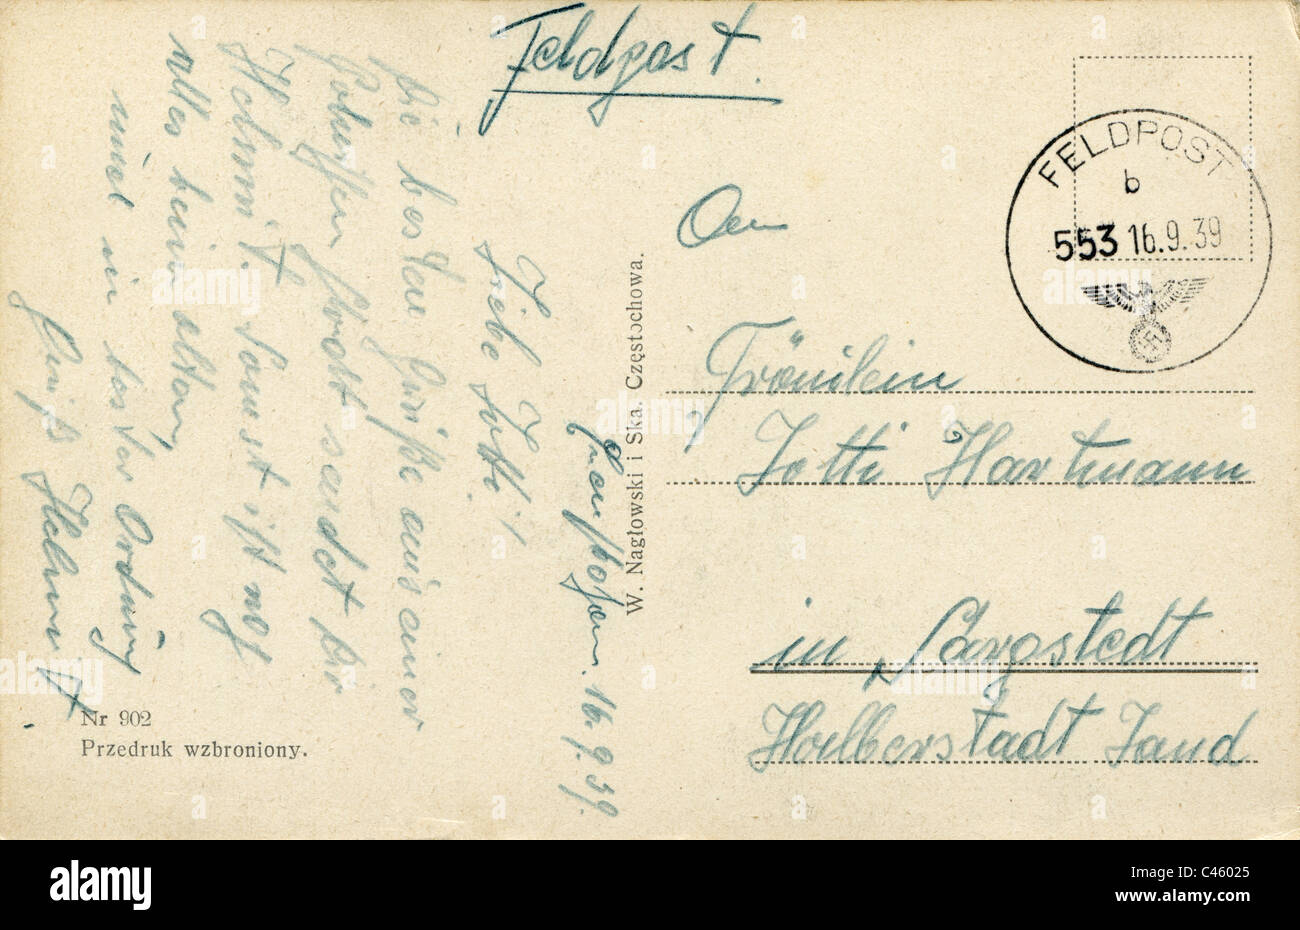 Feldpost.
FELDPOST
b
553 16.9.39
An
Fräulein
Lotti Hartmann
in Sargstedt
Halberstadt Land
W. Nagłowski i Ska. Częstochowa.
16.9.39.
Liebe Lotti!
Die besten Grüße aus einer
Polnischen Stadt sendet dir
Helmut. Sonst ist noch
alles beim alten,
und in bester Ordnung
Gruß Helmut
Nr 902
Przedruk wzbroniony.
alamy
alamy stock photo
C46025
www.alamy.com